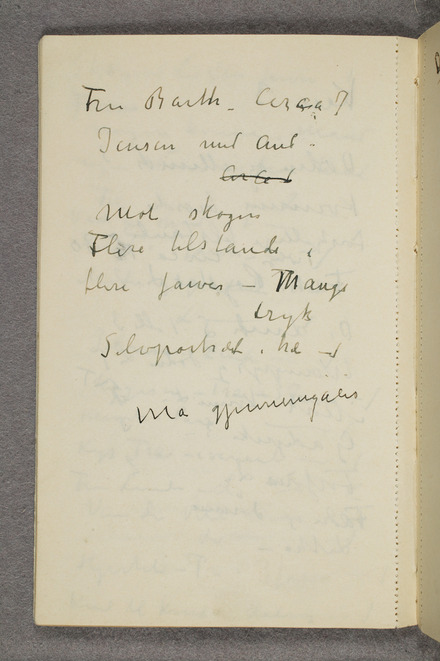 Fru Barth –
Jensen med And –
Mot skogen
Flere tilstande i
flere farver – Mange
tryk
Selvportræt i træ –
Må gjennemgåes